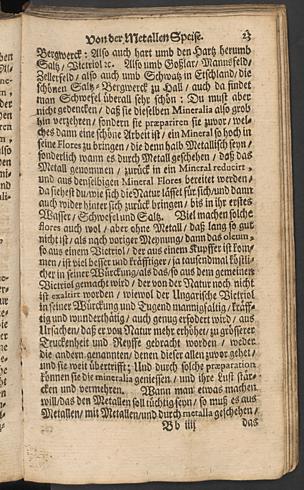 Von der Metallen Speise. 23
Bergwerck: Also auch hart umb den Hartz herumb
Saltz / Vietriol ꝛc. Also umb Goßlar / Mannsfeld /
Zellerfeld / also auch umb Schwatz in Etschland / die
schönen Saltz-Bergwerck zu Hall / auch da findet
man Schwefel überall sehr schön: Du must aber
nicht gedencken / daß sie dieselben Mineralia also grob
hin verzehren / sondern sie præpariren sie zuvor / wel-
ches dann eine schöne Arbeit ist / ein Mineral so hoch in
seine Flores zu bringen / die denn halb Metallisch seyn /
sonderlich wann es durch Metall geschehen / daß das
Metall genommen / zurück in ein Mineral reducirt
und aus denselbigen Mineral Flores bereitet werden /
da siehest du / wie sich die Natur lässet für sich / und dann
auch wider hinter sich zurück bringen / bis in ihr erstes
Wasser / Schwefel und Saltz. Viel machen solche
flores auch wol / aber ohne Metall / daß lang so gut
nicht ist / als nach voriger Meynung / dann das oleum
so aus einem Vietriol / der aus einem Kupffer ist kom-
men / ist viel besser und kräfftiger / ja tausendmal köstli-
cher in seiner Würckung / als das / so aus dem gemeinen
Vietriol gemacht wird / der von der Natur noch nicht
ist exaltirt worden / wiewol der Ungarische Vietriol
in seiner Würckung und Tugend mannigfaltig / kräff-
tig und wunderthätig / auch genug erfodert wird / aus
Ursachen / daß er von Natur mehr erhöhet / zu grösserer
Truckenheit und Reyffe gebracht worden / weder
die andern genannten / denen dieser allen zuvor gehet /
und sie weit übertrifft; Und durch solche præparation
können sie die mineralia geniessen / und ihre Lust stär-
cken und vermehren. Wann man etwas machen
will / das den Metallen soll tüchtig seyn / so muß es aus
Metallen / mit Metallen / und durch metalla geschehen /
B b iiij das